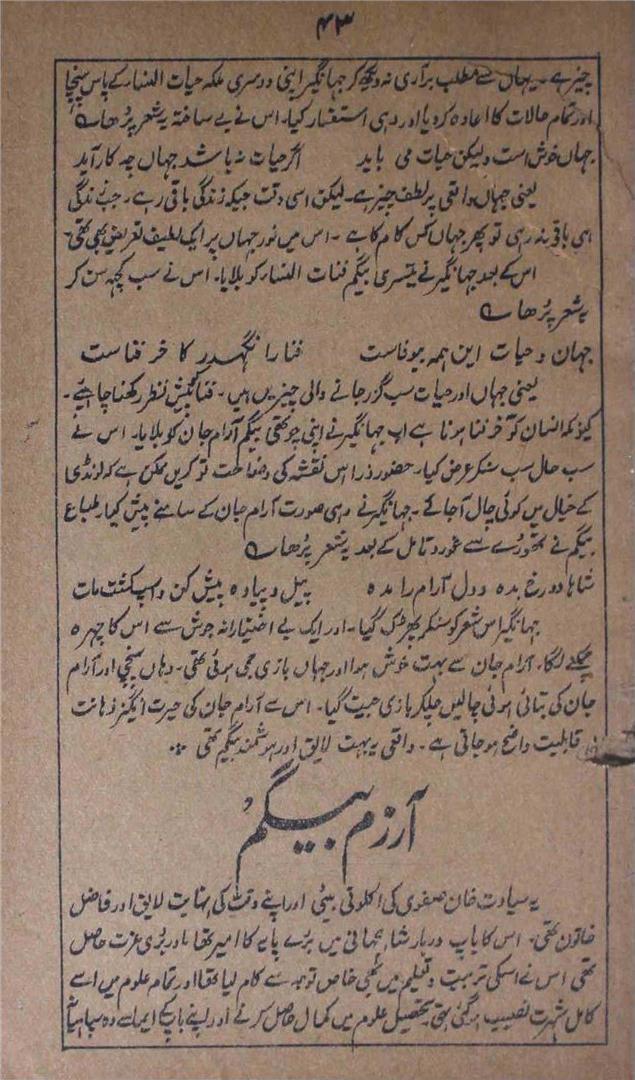 ۴۳
چیز ہے۔ یہاں سے مطلب براری نہ دیکھ کر جہانگیر اپنی دوسری ملکہ حیات النسار کے پاس پہنچا
اور تمام حالات کا اعادہ کر دیا اور وہی استفسار کیا۔ اس نے بے ساختہ یہ شعر پڑھا
جہاں خوش است ولیکن حیات می باید اگر حیات نہ باشد جہاں چہ کار آید
یعنی جہاں واقعی پر لطف چیز ہے۔ لیکن اسی وقت جبکہ زندگی باقی رہے۔ جب زندگی
ہی باقی نہ رہی تو پھر جہاں کس کام کا ہے۔ اس میں نور جہاں پر ایک لطیف تعریض بھی تھی۔
اس کے بعد جہانگیر نے تیسری بیگم فنات النسار کو بلایا۔ اس نے سب کچھ سن کر
یہ شعر پڑھا
جہان و حیات این ہمہ بیوفاست فنا را نگہدر کا خر فناست
یعنی جہاں اور حیات سب گزر جانے والی چیزیں ہیں۔ فنا کو پیش نظر رکھنا چاہیئے۔
کیونکہ انسان کو آخر فنا ہونا ہے اب جہانگیر نے اپنی چوتھی بیگم آرام جان کو بلایا۔ اس نے
سب حال سب سنکر عرض کیا۔ حضور ذرا اس نقشہ کی وضاحت تو کریں ممکن ہے کہ لونڈی
کے خیال میں کوئی چال آجائے۔ جہانگیر نے وہی صورت آرام جان کے سامنے پیش کیا۔ طباع
بیگم نے تھوڑے سے غور و تامل کے بعد یہ شعر پڑھا
شاہا دو رخ بدہ و دل آرام را مدہ پیل و پیادہ پیش کن و اسپ کشت مات
جہانگیر اس شعر کو سنکر پھڑک گیا۔ اور ایک بے اختیارانہ جوش سے اس کا چہرہ
چمکنے لگا۔ آرام جان سے بہت خوش ہوا اور جہاں بازی جمی ہوئی تھی۔ وہاں پہنچے اور آرام
جان کی بتائی ہوئی چالیں چلکر بازی جیت گیا۔ اس سے آرام جان کی حیرت انگیز ذہانت
قابلیت واضح ہو جاتی ہے۔ واقعی یہ بہت لایق اور ہوشمند بیگم تھی
آرزم بیگم
یہ سیادت خان صفوی کی اکلوتی بیٹی اور اپنے وقت کی نہایت لایق اور فاضل
خاتون تھی۔ اس کا باپ دربار شاہجہانی میں بڑے پایہ کا امیر تھا اور بڑی عزت حاصل
تھی اس نے اسکی تربیت و تعلیم میں بھی خاص توجہ سے کام لیا تھا اور تمام علوم میں اسے
کامل شہرت نصیب ہو گئی تھی تحصیل علوم میں کمال حاصل کرنے اور اپنے باپ کے ایما سے وہ